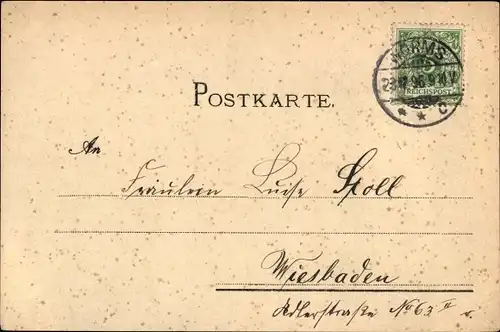 WORMS
9-10 V
C
REICHSPOST
POSTKARTE.
An
Fräulein Luise Stoll
Wiesbaden
Adlerstraße No 63 II